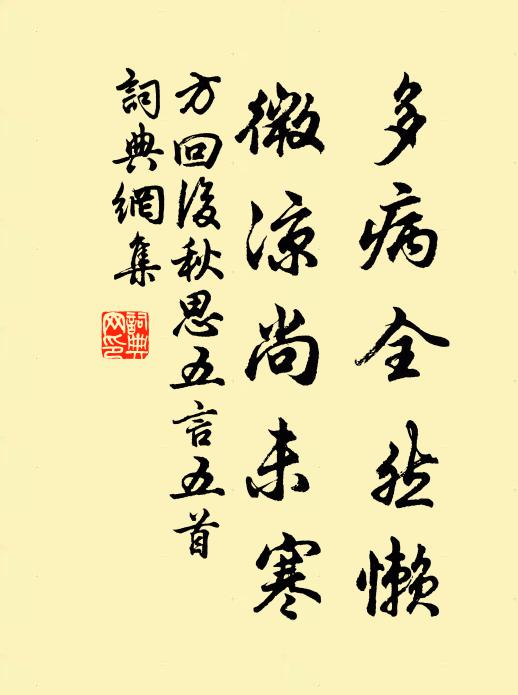 多病全然懒
微凉尚未寒
方回後秋思五言五首
詞典網集
詞典網印